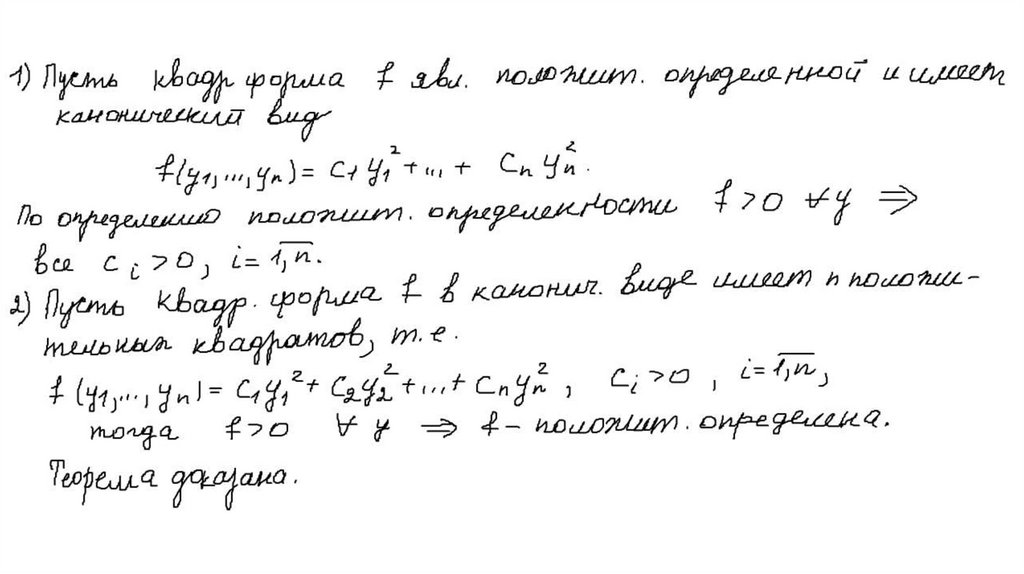 1) Пусть квадр форма f явл. положит. определенной и имеет
канонический вид
f(y₁,...,yₙ) = c₁y₁² + ... + cₙyₙ².
По определению положит. определенности f > 0 ∀y ⇒
все cᵢ > 0, i = 1,n̅.
2) Пусть квадр. форма f в канонич. виде имеет n положи-
тельных квадратов, т.е.
f(y₁,...,yₙ) = c₁y₁² + c₂y₂² + ... + cₙyₙ², cᵢ > 0, i = 1,n̅,
тогда f > 0 ∀ y ⇒ f – положит. определена.
Теорема доказана.